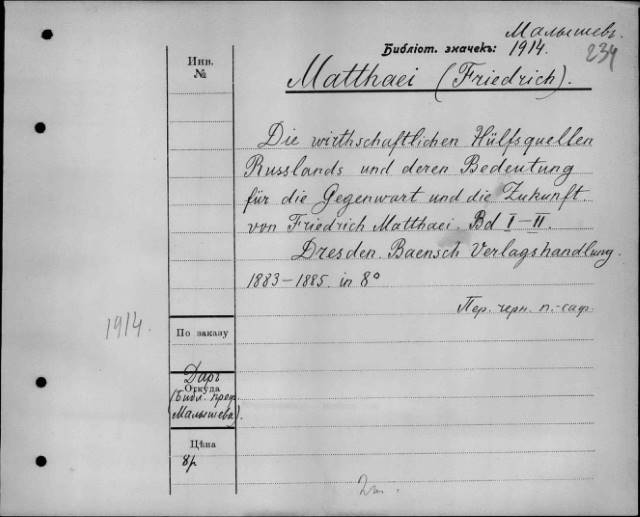 Малышевъ.
Библіот. значекъ: 1914. 234
Инв.
№
Matthaei (Friedrich).
Die wirthschaftlichen Hülfsquellen
Russlands und deren Bedeutung
für die Gegenwart und die Zukunft.
von Friedrich Matthaei. Bd I–II.
Dresden. Baensch Verlagshandlung.
1883–1885. in 8°
Пер. черн. п.-саф.
1914.
По заказу
Даръ
Откуда
(Библ. проф.
Малышева).
Цѣна
8р
2т.